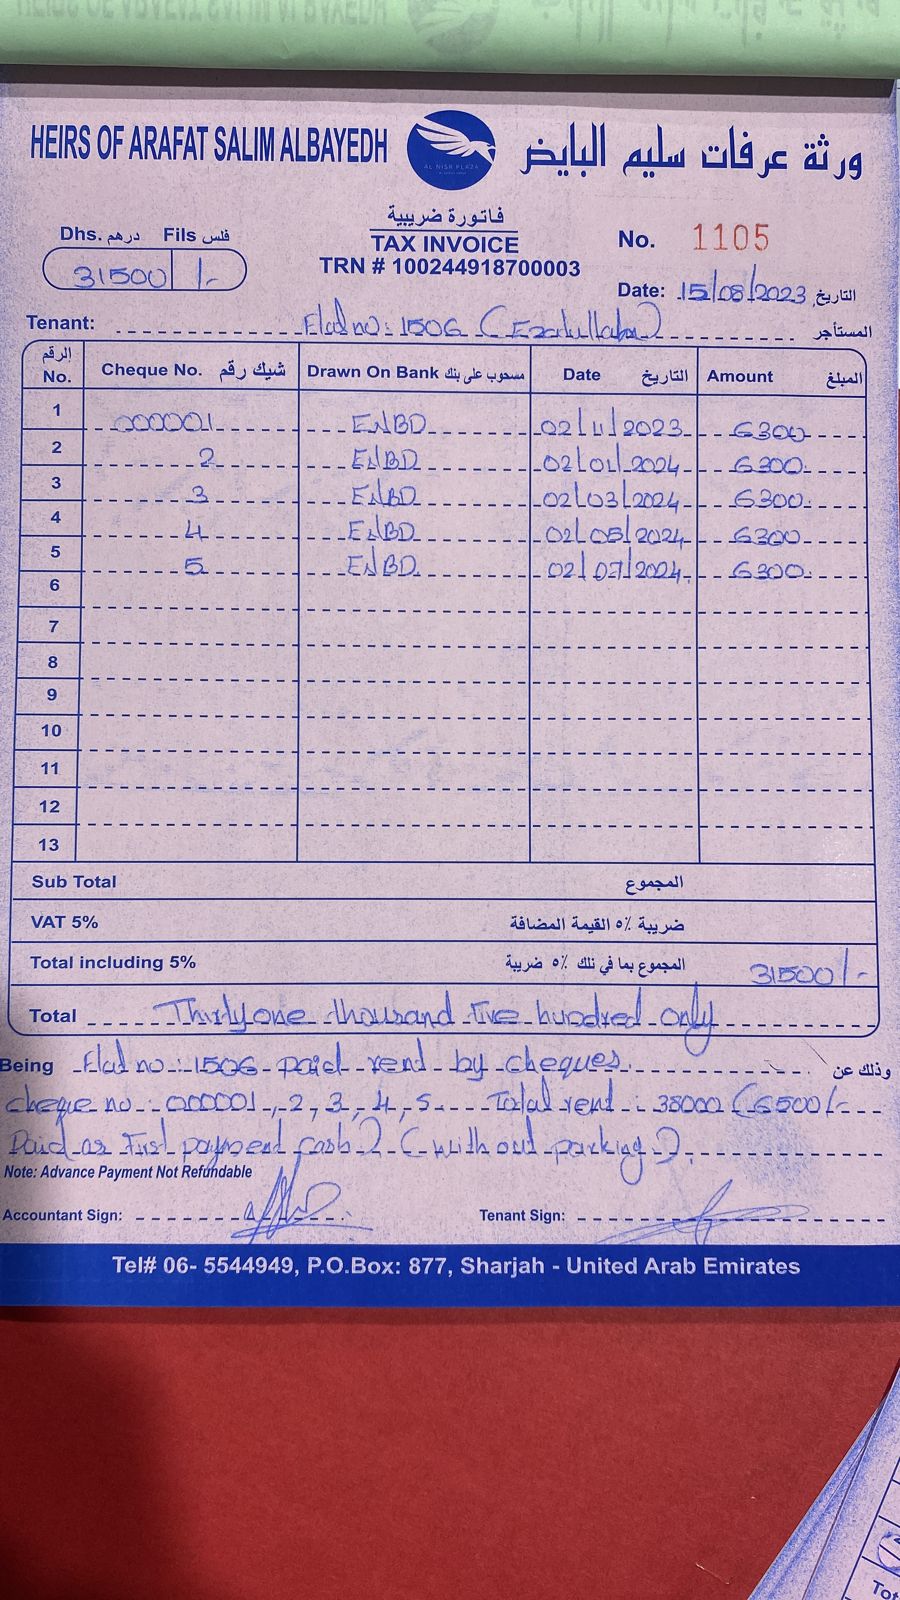 HEIRS OF ARAFAT SALIM ALBAYEDH
ورثة عرفات سليم البايض
AL NISR PLAZA
فاتورة ضريبية
TAX INVOICE
TRN # 100244918700003
Dhs. درهم Fils فلس
31500 /-
No. 1105
Date: 15/08/2023 التاريخ
Tenant: Flat no: 1506 (Ezatullah) المستأجر
الرقم No. Cheque No. شيك رقم Drawn On Bank مسحوب على بنك Date التاريخ Amount المبلغ
1 000001 ENBD 02/11/2023 6300
2 2 ENBD 02/01/2024 6300
3 3 ENBD 02/03/2024 6300
4 4 ENBD 02/05/2024 6300
5 5 ENBD 02/07/2024 6300
6
7
8
9
10
11
12
13
Sub Total المجموع
VAT 5% ضريبة ٥٪ القيمة المضافة
Total including 5% المجموع بما في ذلك ٥٪ ضريبة 31500/-
Total Thirty one thousand five hundred only
Being Flat no: 1506 paid rent by cheques وذلك عن
cheque no: 000001, 2, 3, 4, 5. Total rent: 38000 (6500/-
Paid as first payment cash) (without parking).
Note: Advance Payment Not Refundable
Accountant Sign: Tenant Sign:
Tel# 06- 5544949, P.O.Box: 877, Sharjah - United Arab Emirates